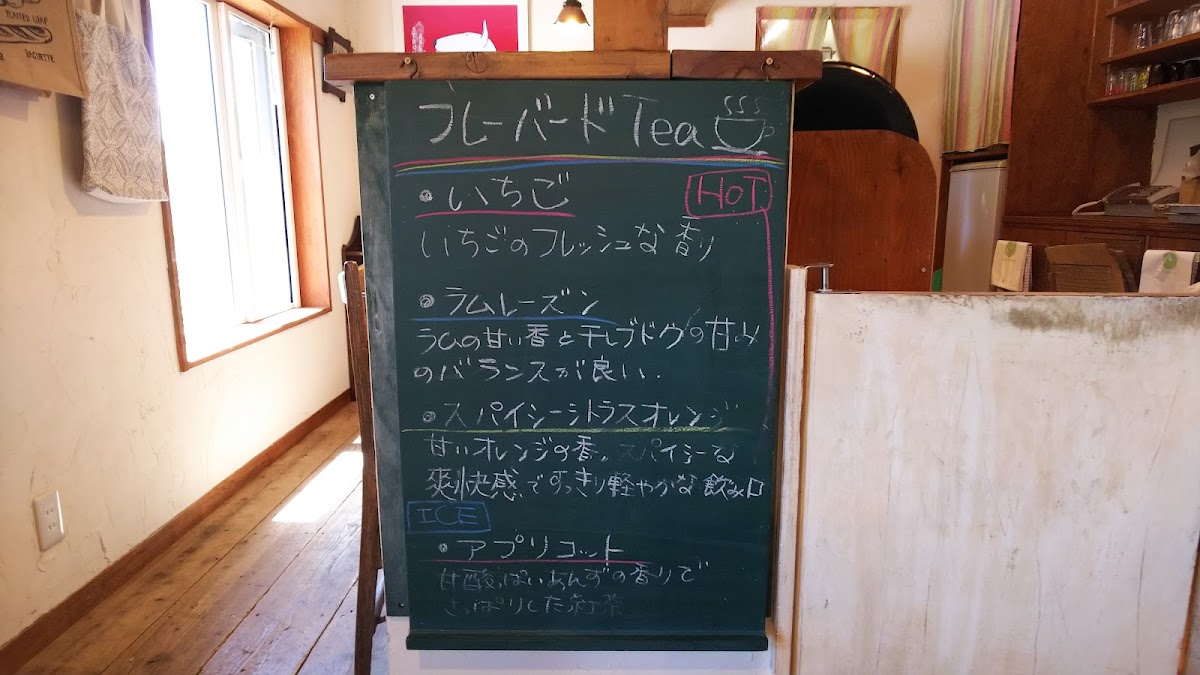 PLAITED LOAF
フレーバードTea
・いちご
HOT
いちごのフレッシュな香り
・ラムレーズン
ラムの甘い香と干しブドウの甘み
のバランスが良い.
・スパイシーシトラスオレンジ
甘いオレンジの香。スパイシーな
爽快感ですっきり軽やかな飲み口
ICE
・アプリコット
甘酸っぱいあんずの香りで
さっぱりした紅茶